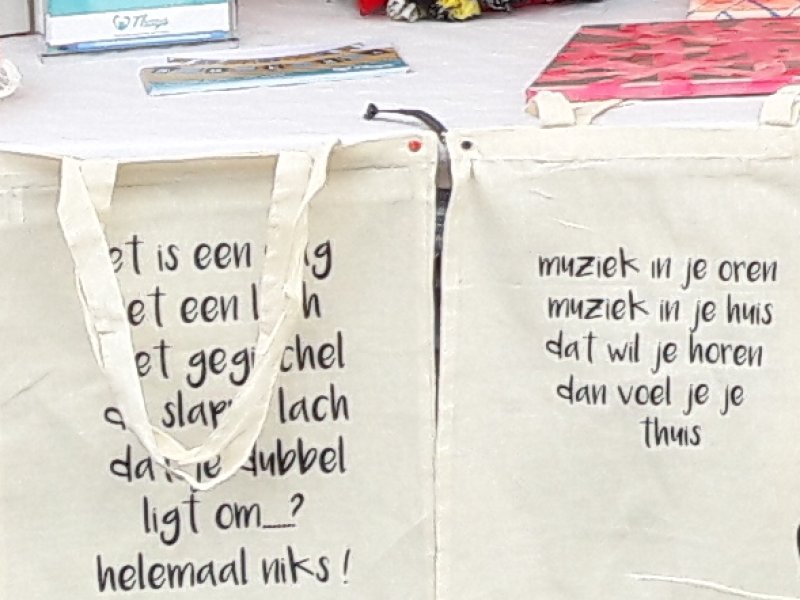 Thuys
et is een
et een
et
slap lach
dat je dubbel
ligt om__?
helemaal niks !
muziek in je oren
muziek in je huis
dat wil je horen
dan voel je je
thuis